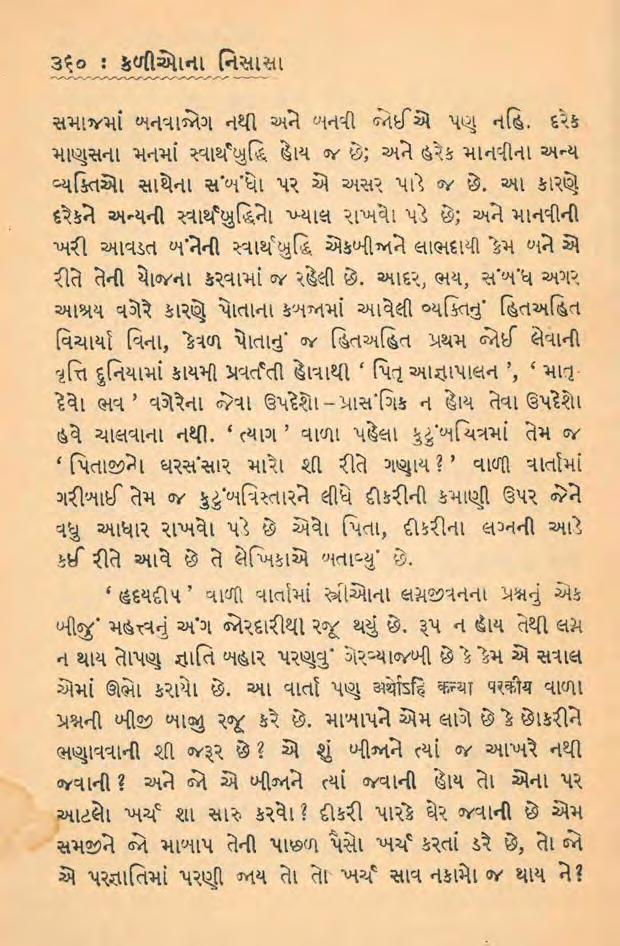 ૩૬૦ : કળીઓના નિસાસા
સમાજમાં બનવાજોગ નથી અને બનવી જોઈએ પણ નહિ. દરેક
માણસના મનમાં સ્વાર્થબુદ્ધિ હોય જ છે; અને હરેક માનવીના અન્ય
વ્યક્તિઓ સાથેના સંબંધો પર એ અસર પાડે જ છે. આ કારણે
દરેકને અન્યની સ્વાર્થબુદ્ધિનો ખ્યાલ રાખવો પડે છે; અને માનવીની
ખરી આવડત બંનેની સ્વાર્થબુદ્ધિ એકબીજાને લાભદાયી કેમ બને એ
રીતે તેની યોજના કરવામાં જ રહેલી છે. આદર, ભય, સંબંધ અગર
આશ્રય વગેરે કારણે પોતાના કબજામાં આવેલી વ્યક્તિનું હિતઅહિત
વિચાર્યા વિના, કેવળ પોતાનું જ હિતઅહિત પ્રથમ જોઈ લેવાની
વૃત્તિ દુનિયામાં કાયમી પ્રવર્તતી હોવાથી ‘ પિતૃ આજ્ઞાપાલન ’, ‘ માતૃ
દેવો ભવ ’ વગેરેના જેવા ઉપદેશો – પ્રાસંગિક ન હોય તેવા ઉપદેશો
હવે ચાલવાના નથી. ‘ ત્યાગ ’ વાળા પહેલા કુટુંબચિત્રમાં તેમ જ
‘ પિતાજીનો ઘરસંસાર મારો શી રીતે ગણાય ? ’ વાળી વાર્તામાં
ગરીબાઈ તેમ જ કુટુંબવિસ્તારને લીધે દીકરીની કમાણી ઉપર જેને
વધુ આધાર રાખવો પડે છે એવો પિતા, દીકરીના લગ્નની આડે
કઈ રીતે આવે છે તે લેખિકાએ બતાવ્યું છે.
‘ હૃદયદીપ ’ વાળી વાર્તામાં સ્ત્રીઓના લગ્નજીવનના પ્રશ્નનું એક
બીજું મહત્ત્વનું અંગ જોરદારીથી રજૂ થયું છે. રૂપ ન હોય તેથી લગ્ન
ન થાય તોપણ જ્ઞાતિ બહાર પરણવું ગેરવ્યાજબી છે કે કેમ એ સવાલ
એમાં ઊભો કરાયો છે. આ વાર્તા પણ अर्थोऽहि कन्या परकीय વાળા
પ્રશ્નની બીજી બાજુ રજૂ કરે છે. માબાપને એમ લાગે છે કે છોકરીને
ભણાવવાની શી જરૂર છે ? એ શું બીજાને ત્યાં જ આખરે નથી
જવાની ? અને જો એ બીજાને ત્યાં જવાની હોય તો એના પર
આટલો ખર્ચ શા સારુ કરવો ? દીકરી પારકે ઘેર જવાની છે એમ
સમજીને જો માબાપ તેની પાછળ પૈસો ખર્ચ કરતાં ડરે છે, તો જો
એ પરજ્ઞાતિમાં પરણી જાય તો તો ખર્ચ સાવ નકામો જ થાય ને ?